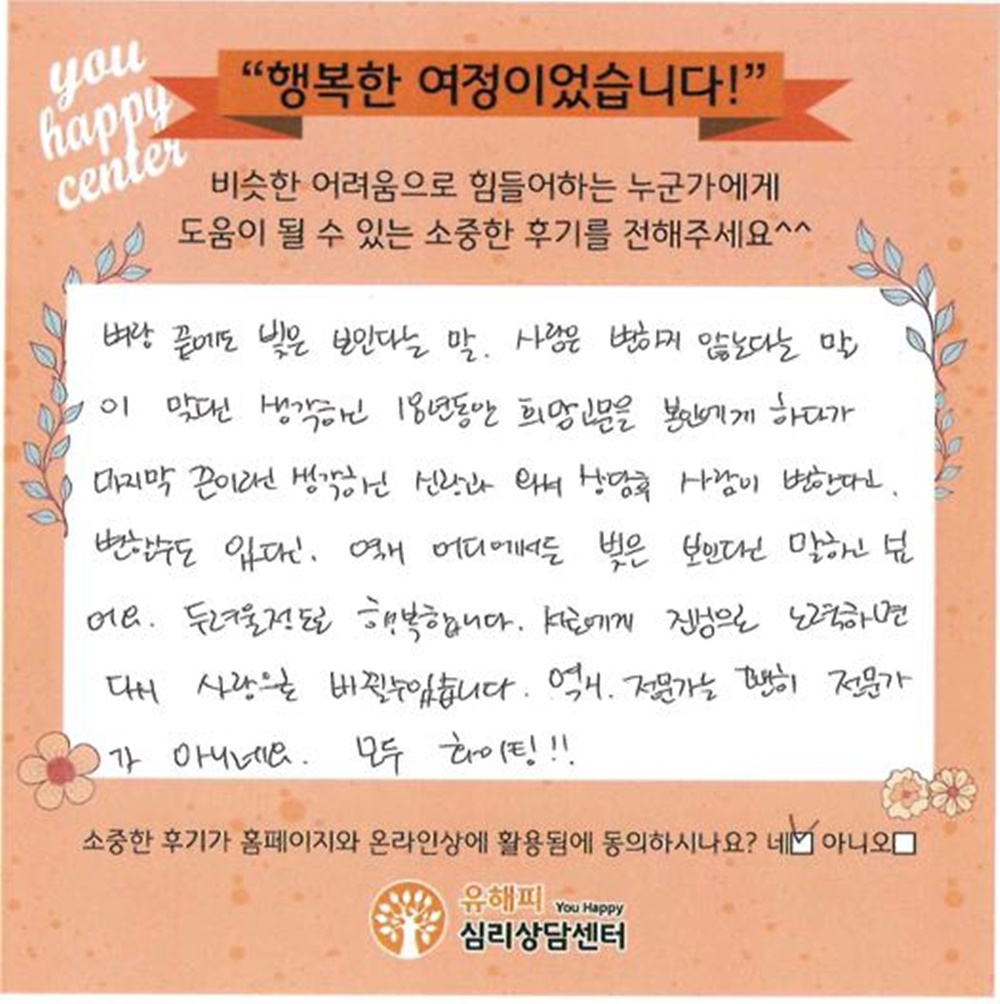 you
happy
center
“행복한 여정이었습니다!”
비슷한 어려움으로 힘들어하는 누군가에게
도움이 될 수 있는 소중한 후기를 전해주세요^^
벼랑 끝에도 빛은 보인다는 말. 사람은 변하지 않는다는 말
이 맞다고 생각하고 18년동안 희망고문을 본인에게 하다가
마지막 끈이라고 생각하고 신랑과 와서 상담후 사람이 변한다고.
변할수도 있다고. 역시 어디에서든 빛은 보인다고 말하고 싶
어요. 두려울정도로 행복합니다. 서로에게 진심으로 노력하면
다시 사랑으로 바뀔수있습니다. 역시. 전문가는 괜히 전문가
가 아니네요. 모두 화이팅!!
소중한 후기가 홈페이지와 온라인상에 활용됨에 동의하시나요? 네 아니오
유해피 You Happy
심리상담센터